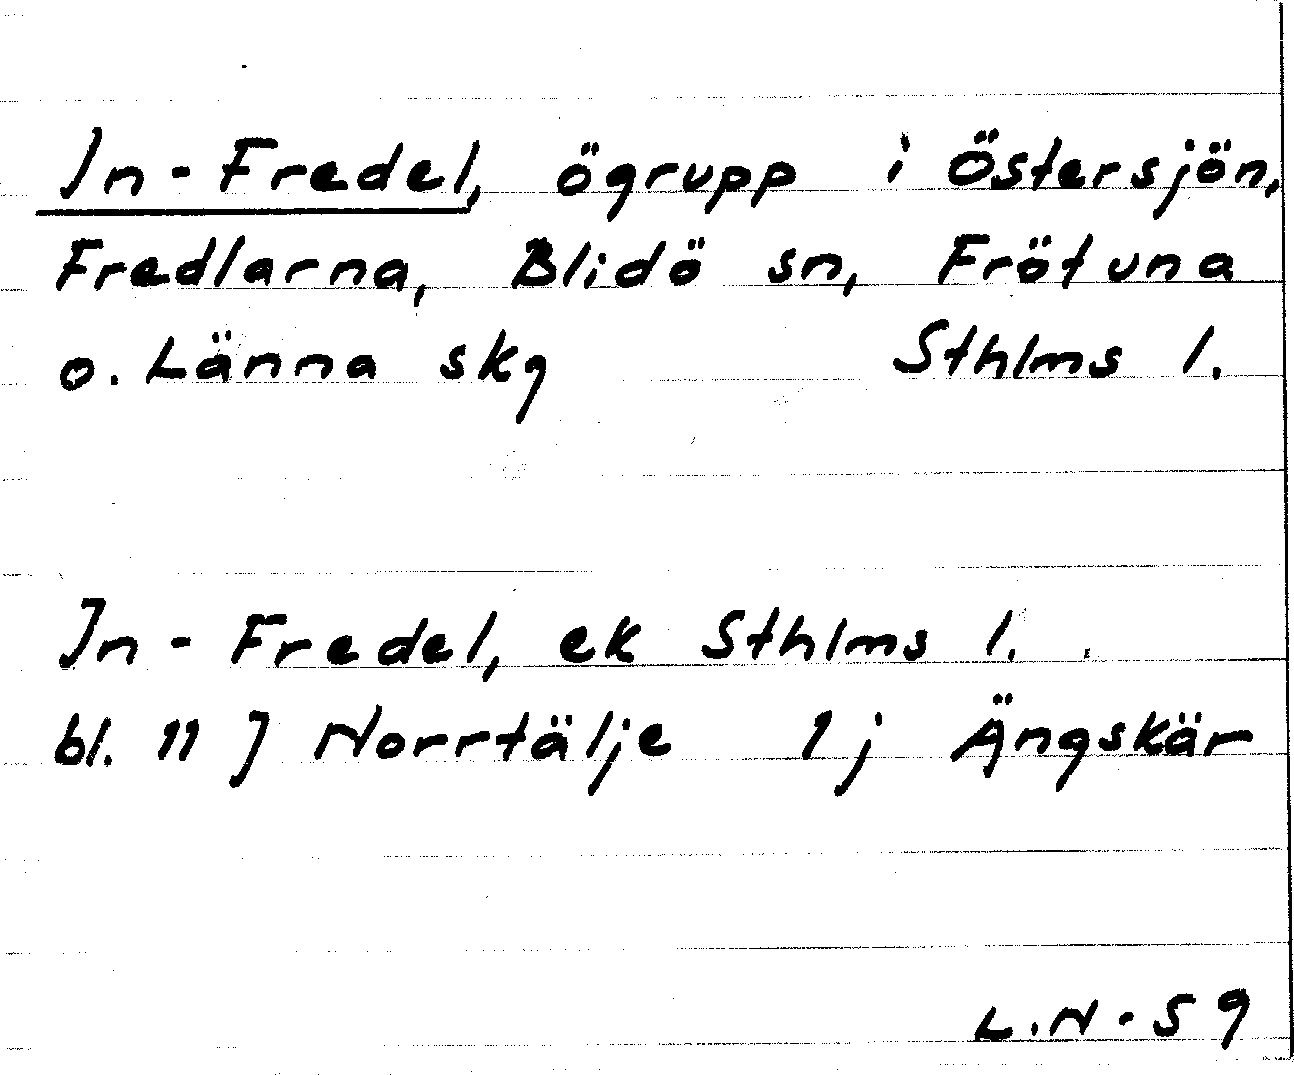 In-Fredel, ögrupp i Östersjön,
Fredlarna, Blidö sn, Frötuna
o. Länna skg Sthlms l.
In-Fredel, ek Sthlms l.
bl. 11 J Norrtälje 1 j Ängskär
L.N-59